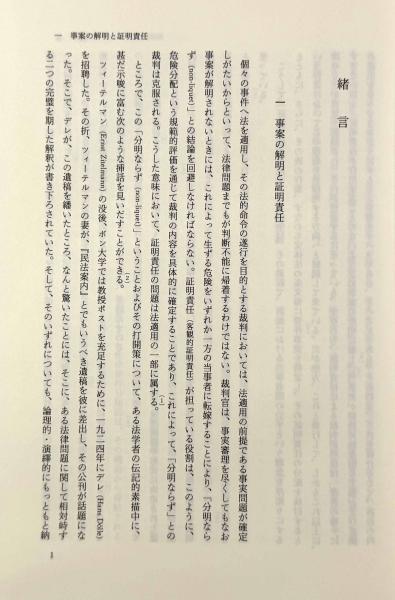 一 事案の解明と証明責任
緒言
一 事案の解明と証明責任
個々の事件へ法を適用し、その法的命令の遂行を目的とする裁判においては、法適用の前提である事実問題が確定
しがたいからといって、法律問題までもが判断不能に帰着するわけではない。裁判官は、事実審理を尽くしてもなお
事案が解明されないときには、これによって生ずる危険をいずれか一方の当事者に転嫁することにより、「分明なら
ず (non-liquet)」との結論を回避しなければならない。証明責任(客観的証明責任)が担っている役割は、このように、
危険分配という規範的評価を通じて裁判の内容を具体的に確定することであり、これによって、「分明ならず」との
裁判は克服される。こうした意味において、証明責任の問題は法適用の一部に属する。(1)
ところで、この「分明ならず (non-liquet)」ということおよびその打開策について、ある法学者の伝記的素描中に、
甚だ示唆に富む次のような挿話を見いだすことができる。(2)
ツィーテルマン (Ernst Zitelmann) の没後、ボン大学では教授ポストを充足するために、一九二四年にデレ (Hans Dölle)
を招聘した。その折、ツィーテルマンの妻が、『民法案内』とでもいうべき遺稿を彼に差出し、その公刊が話題にな
った。そこで、デレが、この遺稿を繙いたところ、なんと驚いたことには、そこに、ある法律問題に関して相対峙す
る二つの完璧を期した解釈が書き下ろされていた。そして、そのいずれについても、論理的・演繹的にもっともと納
1